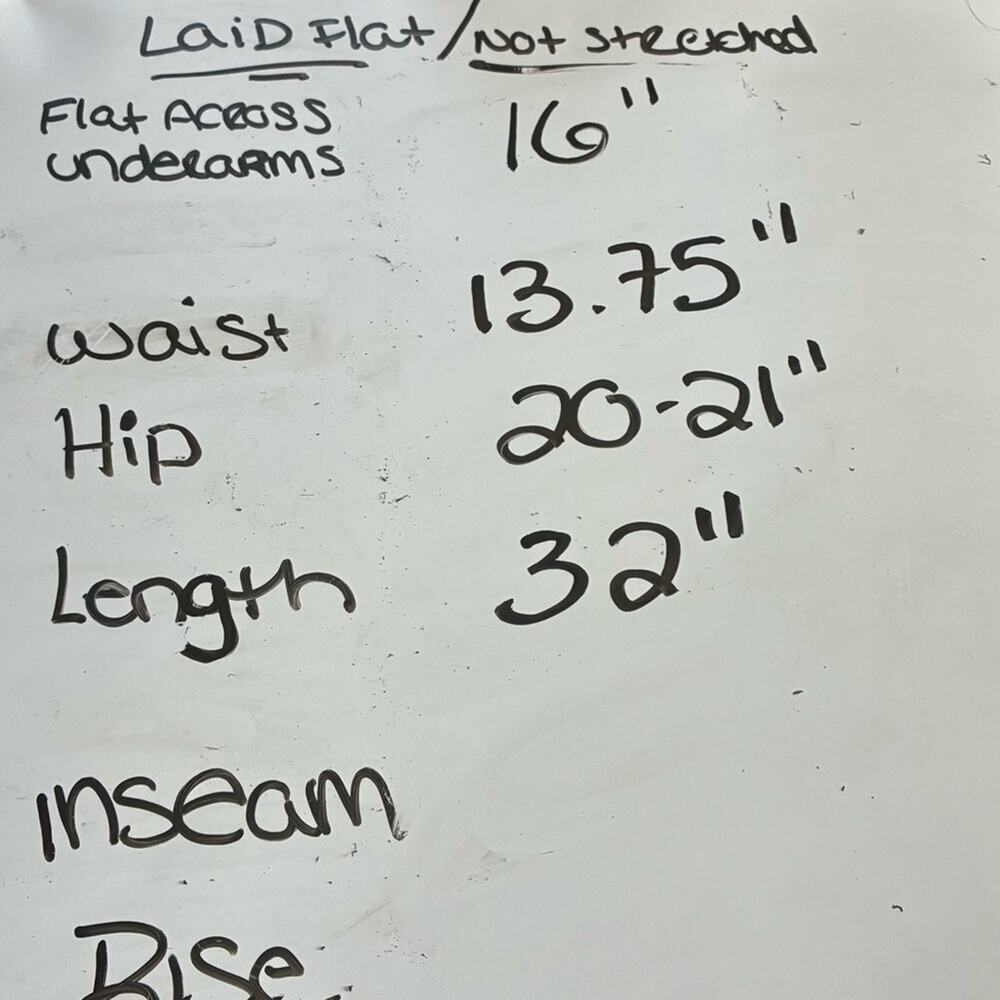 Laid Flat/Not Stretched
Flat Across 16"
underarms
waist 13.75"
Hip 20-21"
Length 32"
inseam
Rise